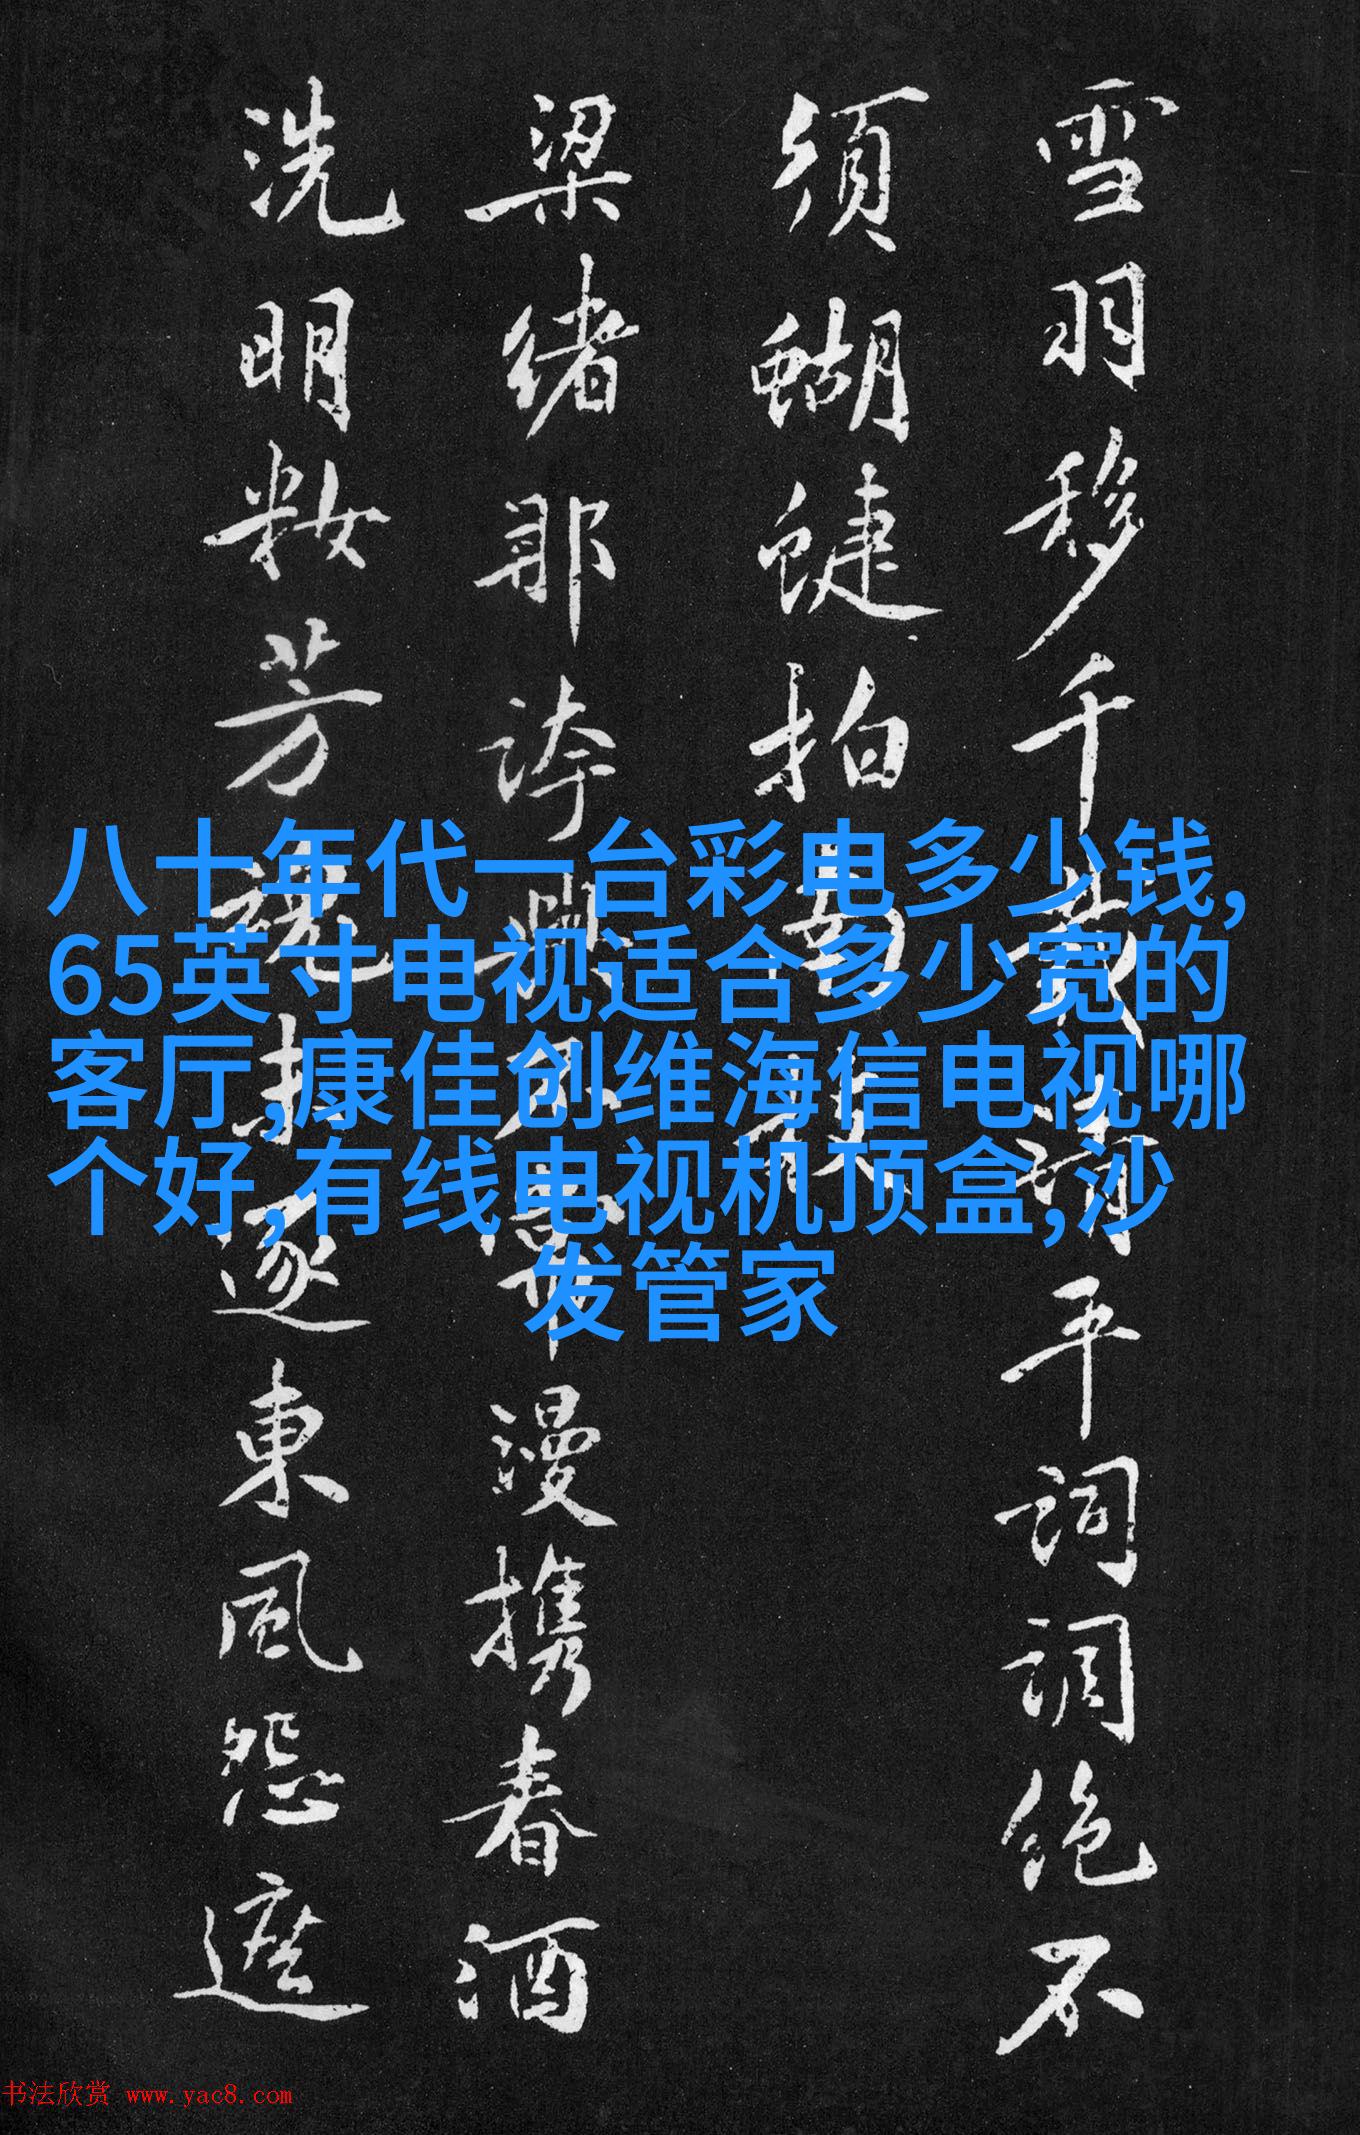 雪羽移千載清平詞調絶不
須蝴蝶拍
梁緒那誇漫携春酒
洗明籹芳魂招逐東風怨遮
八十年代一台彩电多少钱,
65英寸电视适合多少宽的
客厅,康佳创维海信电视哪
个好,有线电视机顶盒,沙
发管家
书法欣赏 www.yac8.com